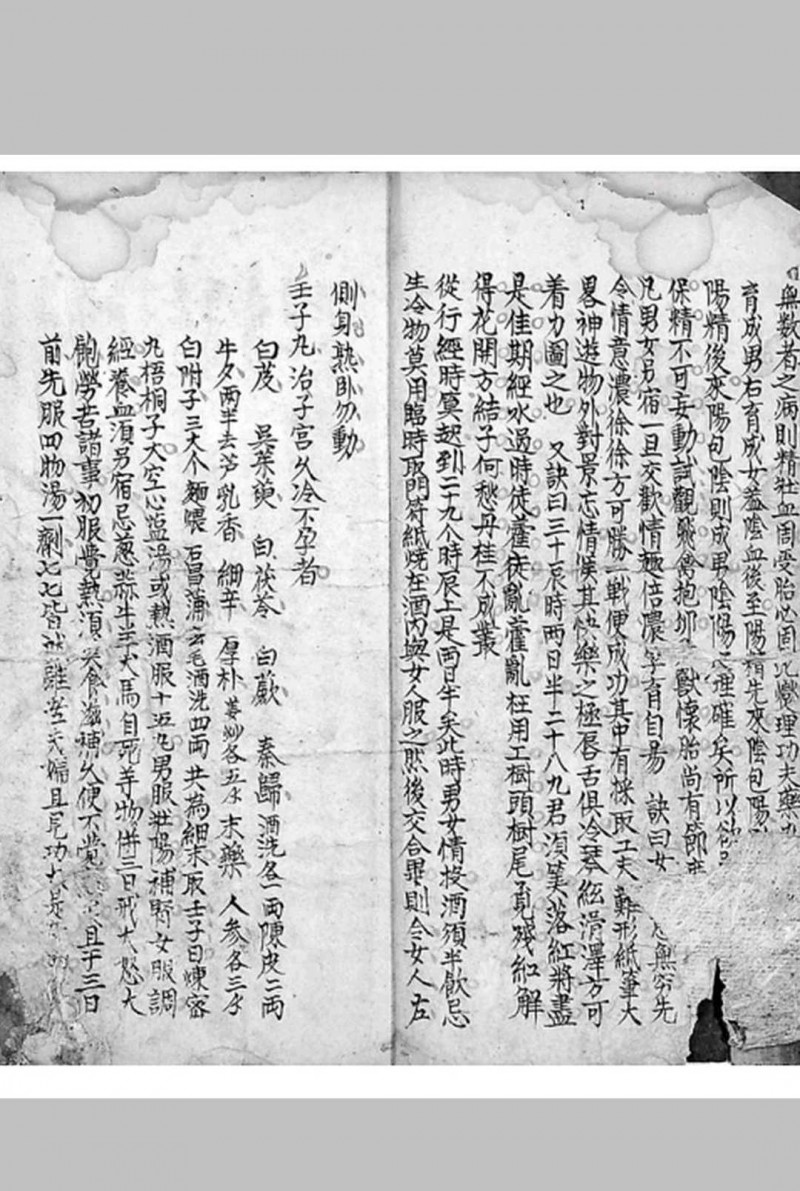 無數者之病則精壯血周受胎必固 燮理功夫藥
育成男右育成女盖陰血後至陽精先來陰包陽
陽精後來陽包陰則成男陰陽之理確矣所以欲
保精不可妄動試觀飛禽抱卵 獸懷胎尚有節
凡男女另宿一旦交歡情趣倍濃孕育自易 訣曰女 無窮先
令情意濃徐徐方可勝一戰便成功其中有採取工夫難形紙筆大
畧神遊物外對景忘情候其快樂之極唇舌俱冷琴絃滑澤方可
着力圖之也 又訣曰三十辰時兩日半二十八九君須算落紅將盡
是佳期經水過時徒霍亂霍亂枉用工樹頭樹尾覓殘紅解
得花開方結子何愁丹桂不成叢
從行經時算起到二十九个時辰上是兩日半矣此時男女情投酒須半飲忌
生冷物莫用臨時取門符紙燒在酒內與女人服之然後交合畢則令女人左
側身熟卧勿動
壬子丸治子宮久冷不孕者
白芨 吳茱萸 白茯苓 白蔹 秦歸酒洗各一兩陳皮二兩
牛夕兩半去芦乳香 細辛 厚朴姜炒各五卜末藥 人參各三卜
白附子三大个麵喂 石菖蒲去毛酒洗四兩 共為細末取壬子日煉密
丸梧桐子大空心盐湯或熱酒服十五丸男服壯陽補腎女服調
經養血須另宿忌蔥蒜牛羊犬馬自死等物併三日戒大怒大
飽勞苦諸事初服覺熱須 食滋補久便不覺 且于三日
前先服四物湯一劑 皆 雖 且